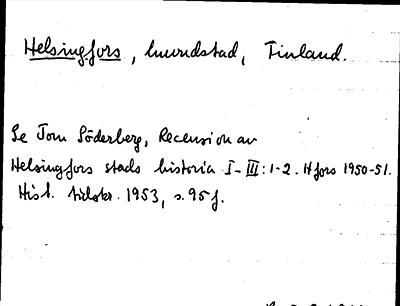 Helsingfors, huvudstad, Finland.
Se Tom Söderberg, Recension av
Helsingfors stads historia I-III:1-2. Hfors 1950-51.
Hist. tidskr. 1953, s. 95 f.